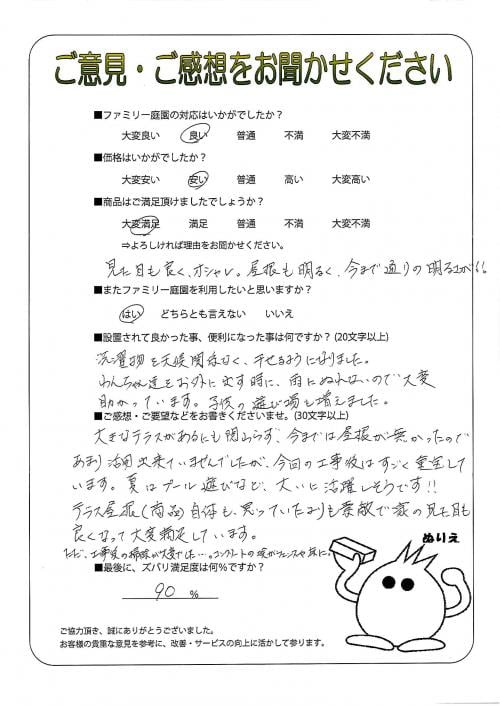 ご意見・ご感想をお聞かせください
■ファミリー庭園の対応はいかがでしたか？
大変良い 良い 普通 不満 大変不満
■価格はいかがでしたか？
大変安い 安い 普通 高い 大変高い
■商品はご満足頂けましたでしょうか？
大変満足 満足 普通 不満 大変不満
⇒よろしければ理由をお聞かせください。
見た目も良く、オシャレ。屋根も明るく、今まで通りの明るさが!!
■またファミリー庭園を利用したいと思いますか？
はい どちらとも言えない いいえ
■設置されて良かった事、便利になった事は何ですか？(20文字以上)
洗濯物を天候関係なく、干せるようになりました。
わんちゃん達をお外に出す時に、雨にぬれないので大変
助かっています。子供の遊び場も増えました。
■ご感想・ご要望などをお書きくださいませ。(30文字以上)
大きなテラスがあるにも関わらず、今までは屋根が無かったので
あまり活用出来ていませんでしたが、今回の工事後はすごく重宝して
います。夏はプール遊びなど、大いに活躍しそうです!!
テラス屋根(商品)自体も、思っていたよりも素敵で家の見た目も
良くなって大変満足しています。
ただ、工事後の掃除が大変でした…。コンクリートの灰がフェンスや床に。
■最後に、ズバリ満足度は何%ですか？
90 %
ぬりえ
ご協力頂き、誠にありがとうございました。
お客様の貴重な意見を参考に、改善・サービスの向上に活かして参ります。